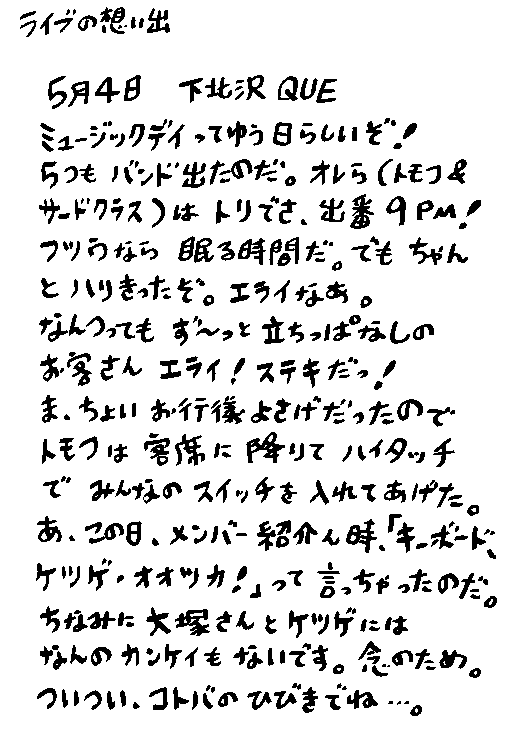 ライブの想い出
5月4日 下北沢 QUE
ミュージックデイってゆう日らしいぞ！
5つも バンド出たのだ。オレら（トモフ&
サードクラス）は トリでさ、出番 9PM！
フツウなら 眠る時間だ。でも ちゃん
と ハリきったぞ。エライなあ。
なんつっても ず〜っと 立ちっぱなしの
お客さん エライ！ステキだっ！
ま、ちょい お行儀よさげだったので
トモフは 客席に 降りて ハイタッチ
で みんなの スイッチを 入れてあげた。
あ、この日、メンバー紹介ん時、「キーボード、
ケツゲ・オオツカ！」って 言っちゃったのだ。
ちなみに 大塚さんと ケツゲには
なんの カンケイも ないです。念のため。
ついつい、コトバの ひびきでね…。